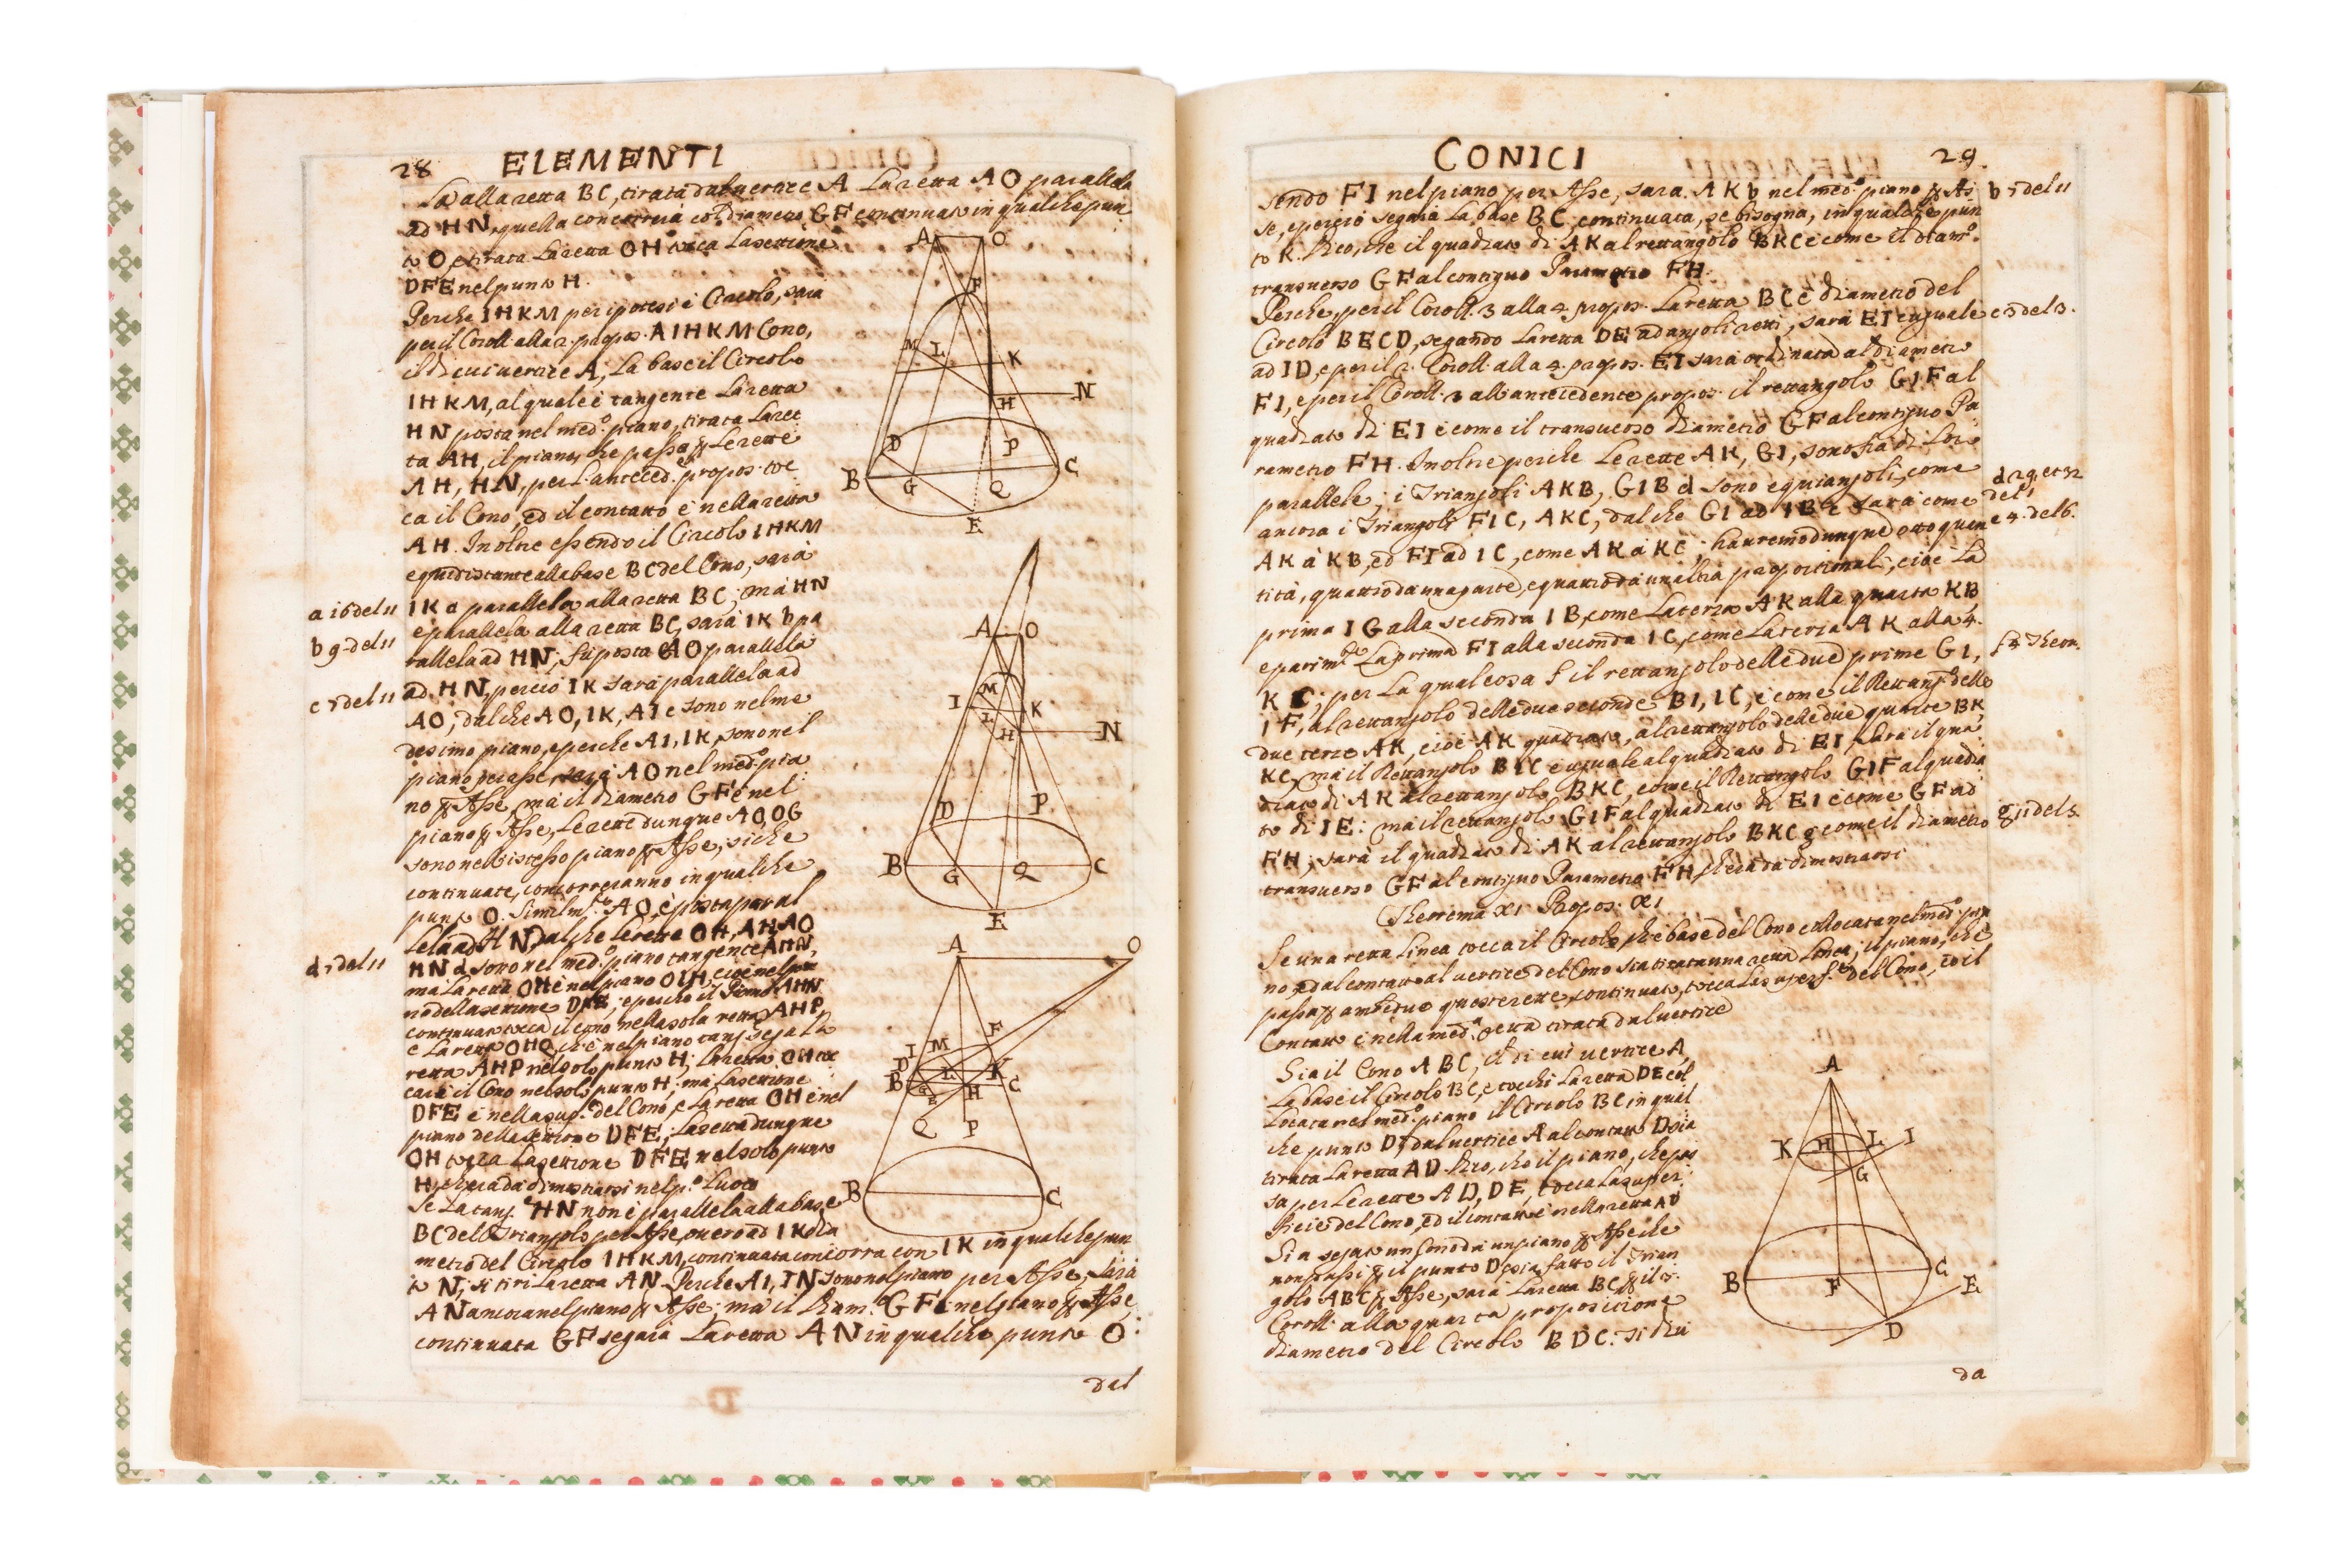 28 ELEMENTI
alla retta BC, tirata dal uertice A La retta AO parallela
ad HN, quella concorrerà col diametro GF continuato in qualche pun
to O, e tirata La retta OH tocca La settione
DFE nel punto H.
Perche IHKM per ipotesi è Circolo, sarà
per il Coroll. alla 2. propos. AIHKM Cono,
il di cui uertice A, La base il Circolo
IHKM, al quale è tangente La retta
HN posta nel med.o piano, tirata La ret
ta AH, il piano, che passa p Le rette
AH, HN, per L'anteced. propos. toc
ca il Cono, ed il contatto è nella retta
AH. Inoltre essendo il Circolo IHKM
equidistante alla base BC del Cono, sarà
a 16 del 11 IK a parallela alla retta BC; mà HN
è parallela alla retta BC, sarà IK b pa
b 9 del 11 rallela ad HN; si è posta AO parallela
c 7 del 11 ad HN, perciò IK sarà parallela ad
AO; dal che AO, IK, AI c sono nel me
desimo piano, e perche AI, IK, sono nel
piano per asse, sarà AO nel med.o pia
no p Asse, mà il diametro GF è nel
piano p Asse, Le rette dunque AO, OG
sono nell'istesso piano p Asse, siche
continuate, concorreranno in qualche
punto O. Similm.te AO, è posta paral
lela ad HN, dal che Le rette OH, AH, AO
d 7 del 11 HN d sono nel med.o piano tangente AHN,
ma La retta OH è nel piano OIH, cioè nel pia
no della settione DFE; e perche il Piano AHN
continuato tocca il cono nella sola retta AHP,
e La retta OHQ, che è nel piano tang. sega La
retta AHP nel solo punto H; La retta OH toc
carà il Cono nel solo punto H; ma La settione
DFE è nella sup. del Cono, e La retta OH è nel
piano della settione DFE; La retta dunque
OH tocca La settione DFE nel solo punto
H, che era da dimostrarsi nel p.o Luoco
Se La tang.e HN non è parallela alla base
BC del Triangolo per Asse, ouero ad IK dia
metro del Circolo IHKM, continuata concorra con IK in qualche pun
to N; si tiri La retta AN. Perche AI, IN sono nel piano per Asse, sarà
AN ancora nel piano p Asse; ma il Diam.o GF è nel piano p Asse,
continuata GF segarà La retta AN in qualche punto O:
dal
A O
F
M L K
H N
D P
B G Q C
E
A O
M
I L K
H N
D P
B G Q C
E
A O
F
I M
D L K
B G C
E H
Q P
B C
CONICI 29.
sendo FI nel piano per Asse, sara AK b nel med.o piano p As b 7 del 11
se, e perciò segarà La base BC continuata, se bisogna, in qualche pun
to K. Dico, che il quadrato di AK al rettangolo BKC è come il diam.o
transuerso GF al contiguo Parametro FH.
Perche, per il Coroll. 3 alla 4. propos. La retta BC è diametro del
Circolo BECD, segando La retta DE ad angoli retti, sarà EI c uguale c 3 del 3.
ad ID, e per il 2. Coroll. alla 4. propos. EI sarà ordinata al diametro
FI, e per il Coroll. 3 all'antecedente propos. il rettangolo GIF al
quadrato di EI è come il transuerso diametro GF al contiguo Pa
rametro FH. Inoltre perche Le rette AK, GI, sono frà di Loro
parallele, i Triangoli AKB, GIB d sono equiangoli, come d 29. et 32
ancora i Triangoli FIC, AKC, dal che GI ad IB e sarà come del 1
AK à KB, ed FI ad IC, come AK à KC; hauremo dunque otto quan e 4. del 6.
tità, quattro da una parte, e quattro da un'altra proportionali, cioè La
prima IG alla seconda IB, come La terza AK alla quarta KB
e parim.te La prima FI alla seconda IC, come La terza AK alla 4.
KC; per La qual cosa f il rettangolo delle due prime GI, f 4 Theon.
IF, al rettangolo delle due seconde BI, IC, è come il Rettang.o delle
due terze AK, cioè AK quadrato, al rettangolo delle due quarte BK,
KC, mà il Rettangolo BIC è uguale al quadrato di EI, sarà il qua
drato di AK al rettangolo BKC, come il Rettangolo GIF al quadra
to di IE: ma il rettangolo GIF al quadrato di EI è come GF ad
FH; sarà il quadrato di AK al rettangolo BKC g come il diametro g 11 del 5.
transuerso GF al contiguo Parametro FH, che era da dimostrarsi
Theorema XI Propos. XI
Se una retta Linea tocca il Circolo, che è base del Cono collocata nel med.o pia
no, e dal contatto al uertice del Cono sia tirata una retta Linea, il piano, che
passa p ambedue queste rette, continuato, tocca La superf.e del Cono, ed il
Contatto è nella med.a retta tirata dal uertice
Sia il Cono ABC, il di cui uertice A,
La base il Circolo BC, e tocchi La retta DE col
Locata nel med.o piano il Circolo BC in qual
che punto D, e dal uertice A al contatto D sia
tirata La retta AD. Dico, che il piano, che pas
sa per Le rette AD, DE, tocca La super
ficie del Cono, ed il contatto è nella retta AD
Sia segato un Cono da un piano p Asse che
non passi p il punto D, e sia fatto il Trian
golo ABC p Asse, sarà La retta BC p il 3.
Coroll. alla quarta propositione
diametro del Circolo BDC. Si diui
da
A
K H L I
G
B F C
E
D